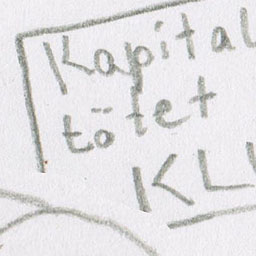 Kapital
tötet
KL